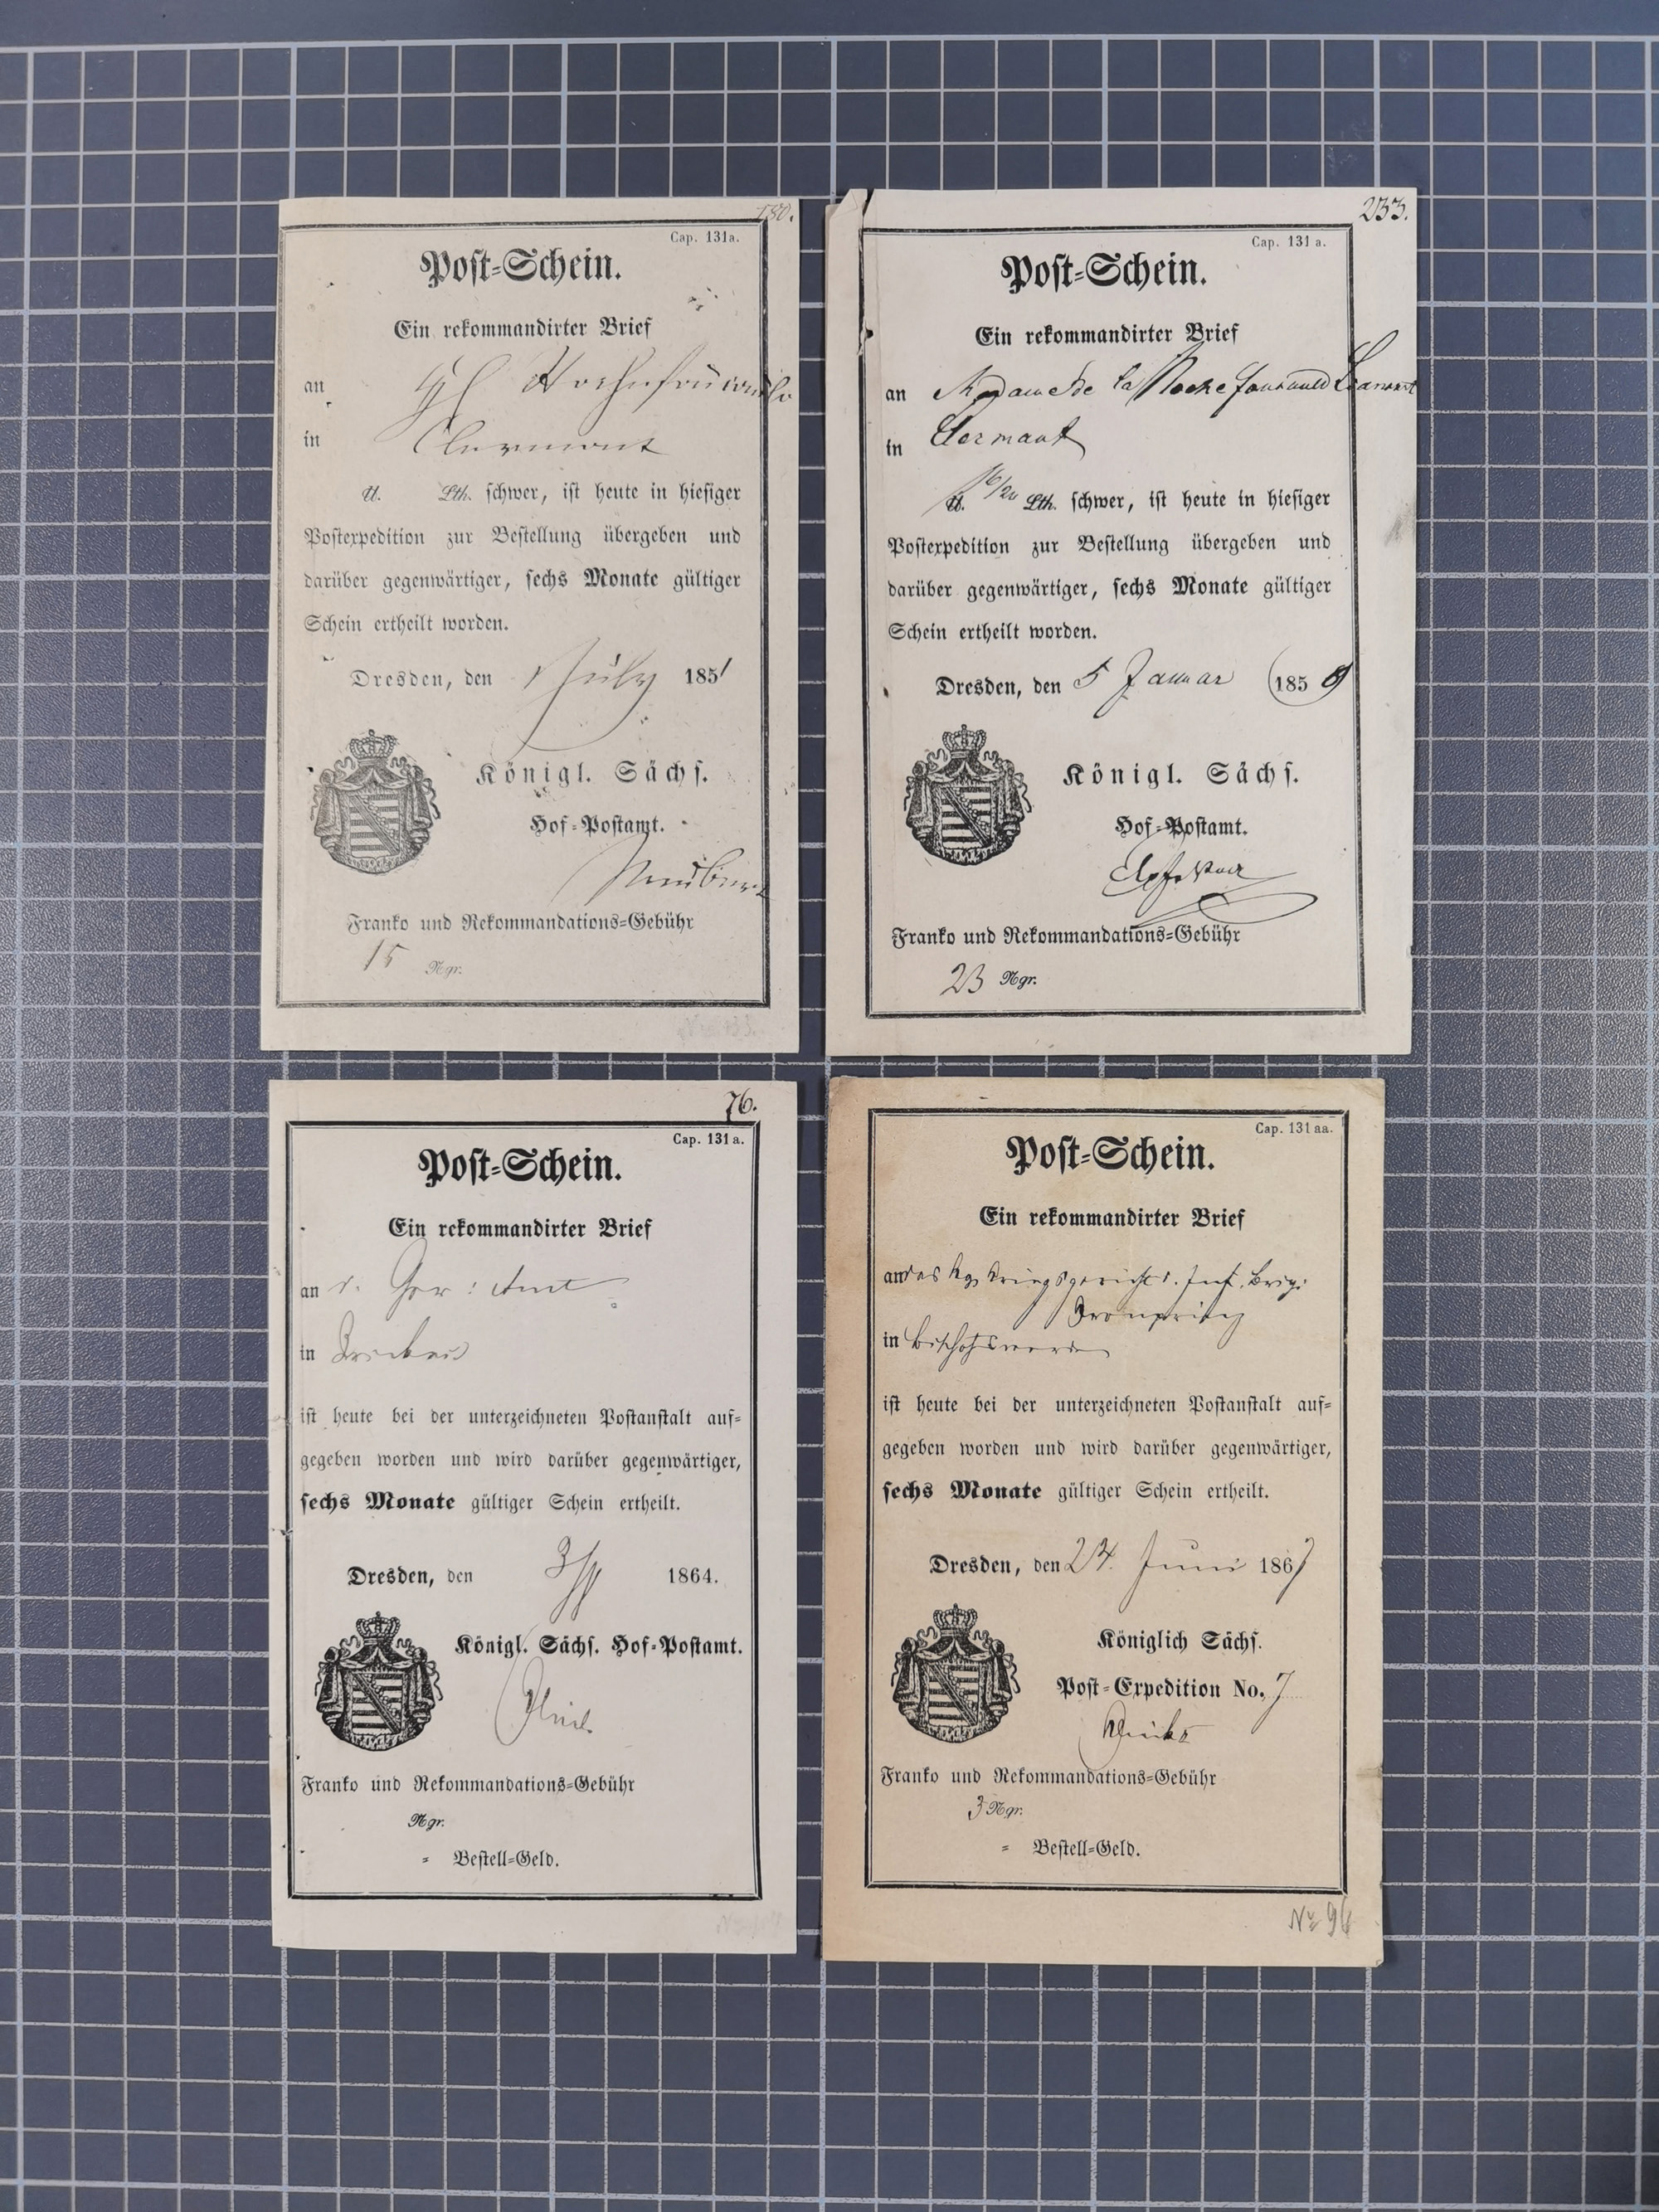 180.
Cap. 131a.
Post-Schein.
Ein rekommandirter Brief
an
in Clermont
℔. Lth. schwer, ist heute in hiesiger
Postexpedition zur Bestellung übergeben und
darüber gegenwärtiger, sechs Monate gültiger
Schein ertheilt worden.
Dresden, den 1 July 1851
Königl. Sächs.
Hof-Postamt.
Franko und Rekommandations-Gebühr
15 Ngr.
233.
Cap. 131 a.
Post-Schein.
Ein rekommandirter Brief
an Madame de la Rochefoucauld
in Clermont
℔. 16/20 Lth. schwer, ist heute in hiesiger
Postexpedition zur Bestellung übergeben und
darüber gegenwärtiger, sechs Monate gültiger
Schein ertheilt worden.
Dresden, den 5 Januar 185
Königl. Sächs.
Hof-Postamt.
Franko und Rekommandations-Gebühr
23 Ngr.
76.
Cap. 131 a.
Post-Schein.
Ein rekommandirter Brief
an d. Ger: Amt
in Zwickau
ist heute bei der unterzeichneten Postanstalt auf-
gegeben worden und wird darüber gegenwärtiger,
sechs Monate gültiger Schein ertheilt.
Dresden, den 1864.
Königl. Sächs. Hof-Postamt.
Franko und Rekommandations-Gebühr
Ngr.
= Bestell-Geld.
Cap. 131 aa.
Post-Schein.
Ein rekommandirter Brief
an das Kgl Kriegsgericht d. Inf. Brig:
Kronprinz
in Bischofswerda
ist heute bei der unterzeichneten Postanstalt auf-
gegeben worden und wird darüber gegenwärtiger,
sechs Monate gültiger Schein ertheilt.
Dresden, den 24. Juni 1867
Königlich Sächs.
Post-Expedition No. 7
Franko und Rekommandations-Gebühr
3 Ngr.
= Bestell-Geld.
No 96